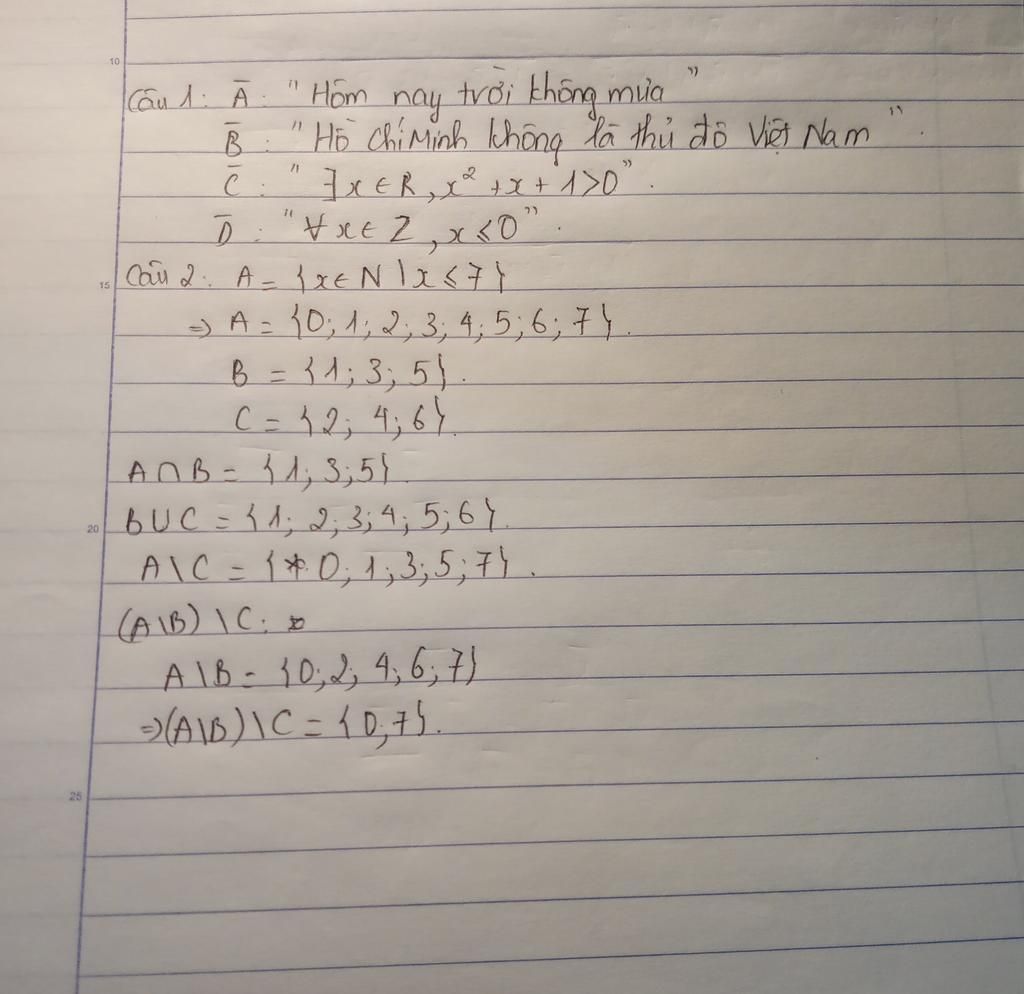 10
Câu 1: A̅ : "Hôm nay trời không mưa"
B̅ : "Hồ Chí Minh không là thủ đô Việt Nam".
C̅ : "∃x ∈ R, x² + x + 1 > 0".
D̅ : "∀x ∈ Z, x ≤ 0".
15 Câu 2: A = {x ∈ N | x ≤ 7}
=> A = {0; 1; 2; 3; 4; 5; 6; 7}.
B = {1; 3; 5}.
C = {2; 4; 6}.
A ∩ B = {1; 3; 5}.
20 B ∪ C = {1; 2; 3; 4; 5; 6}.
A \ C = {0; 1; 3; 5; 7}.
(A\B) \ C:
A \ B = {0; 2; 4; 6; 7}
=> (A\B) \ C = {0; 7}.
25